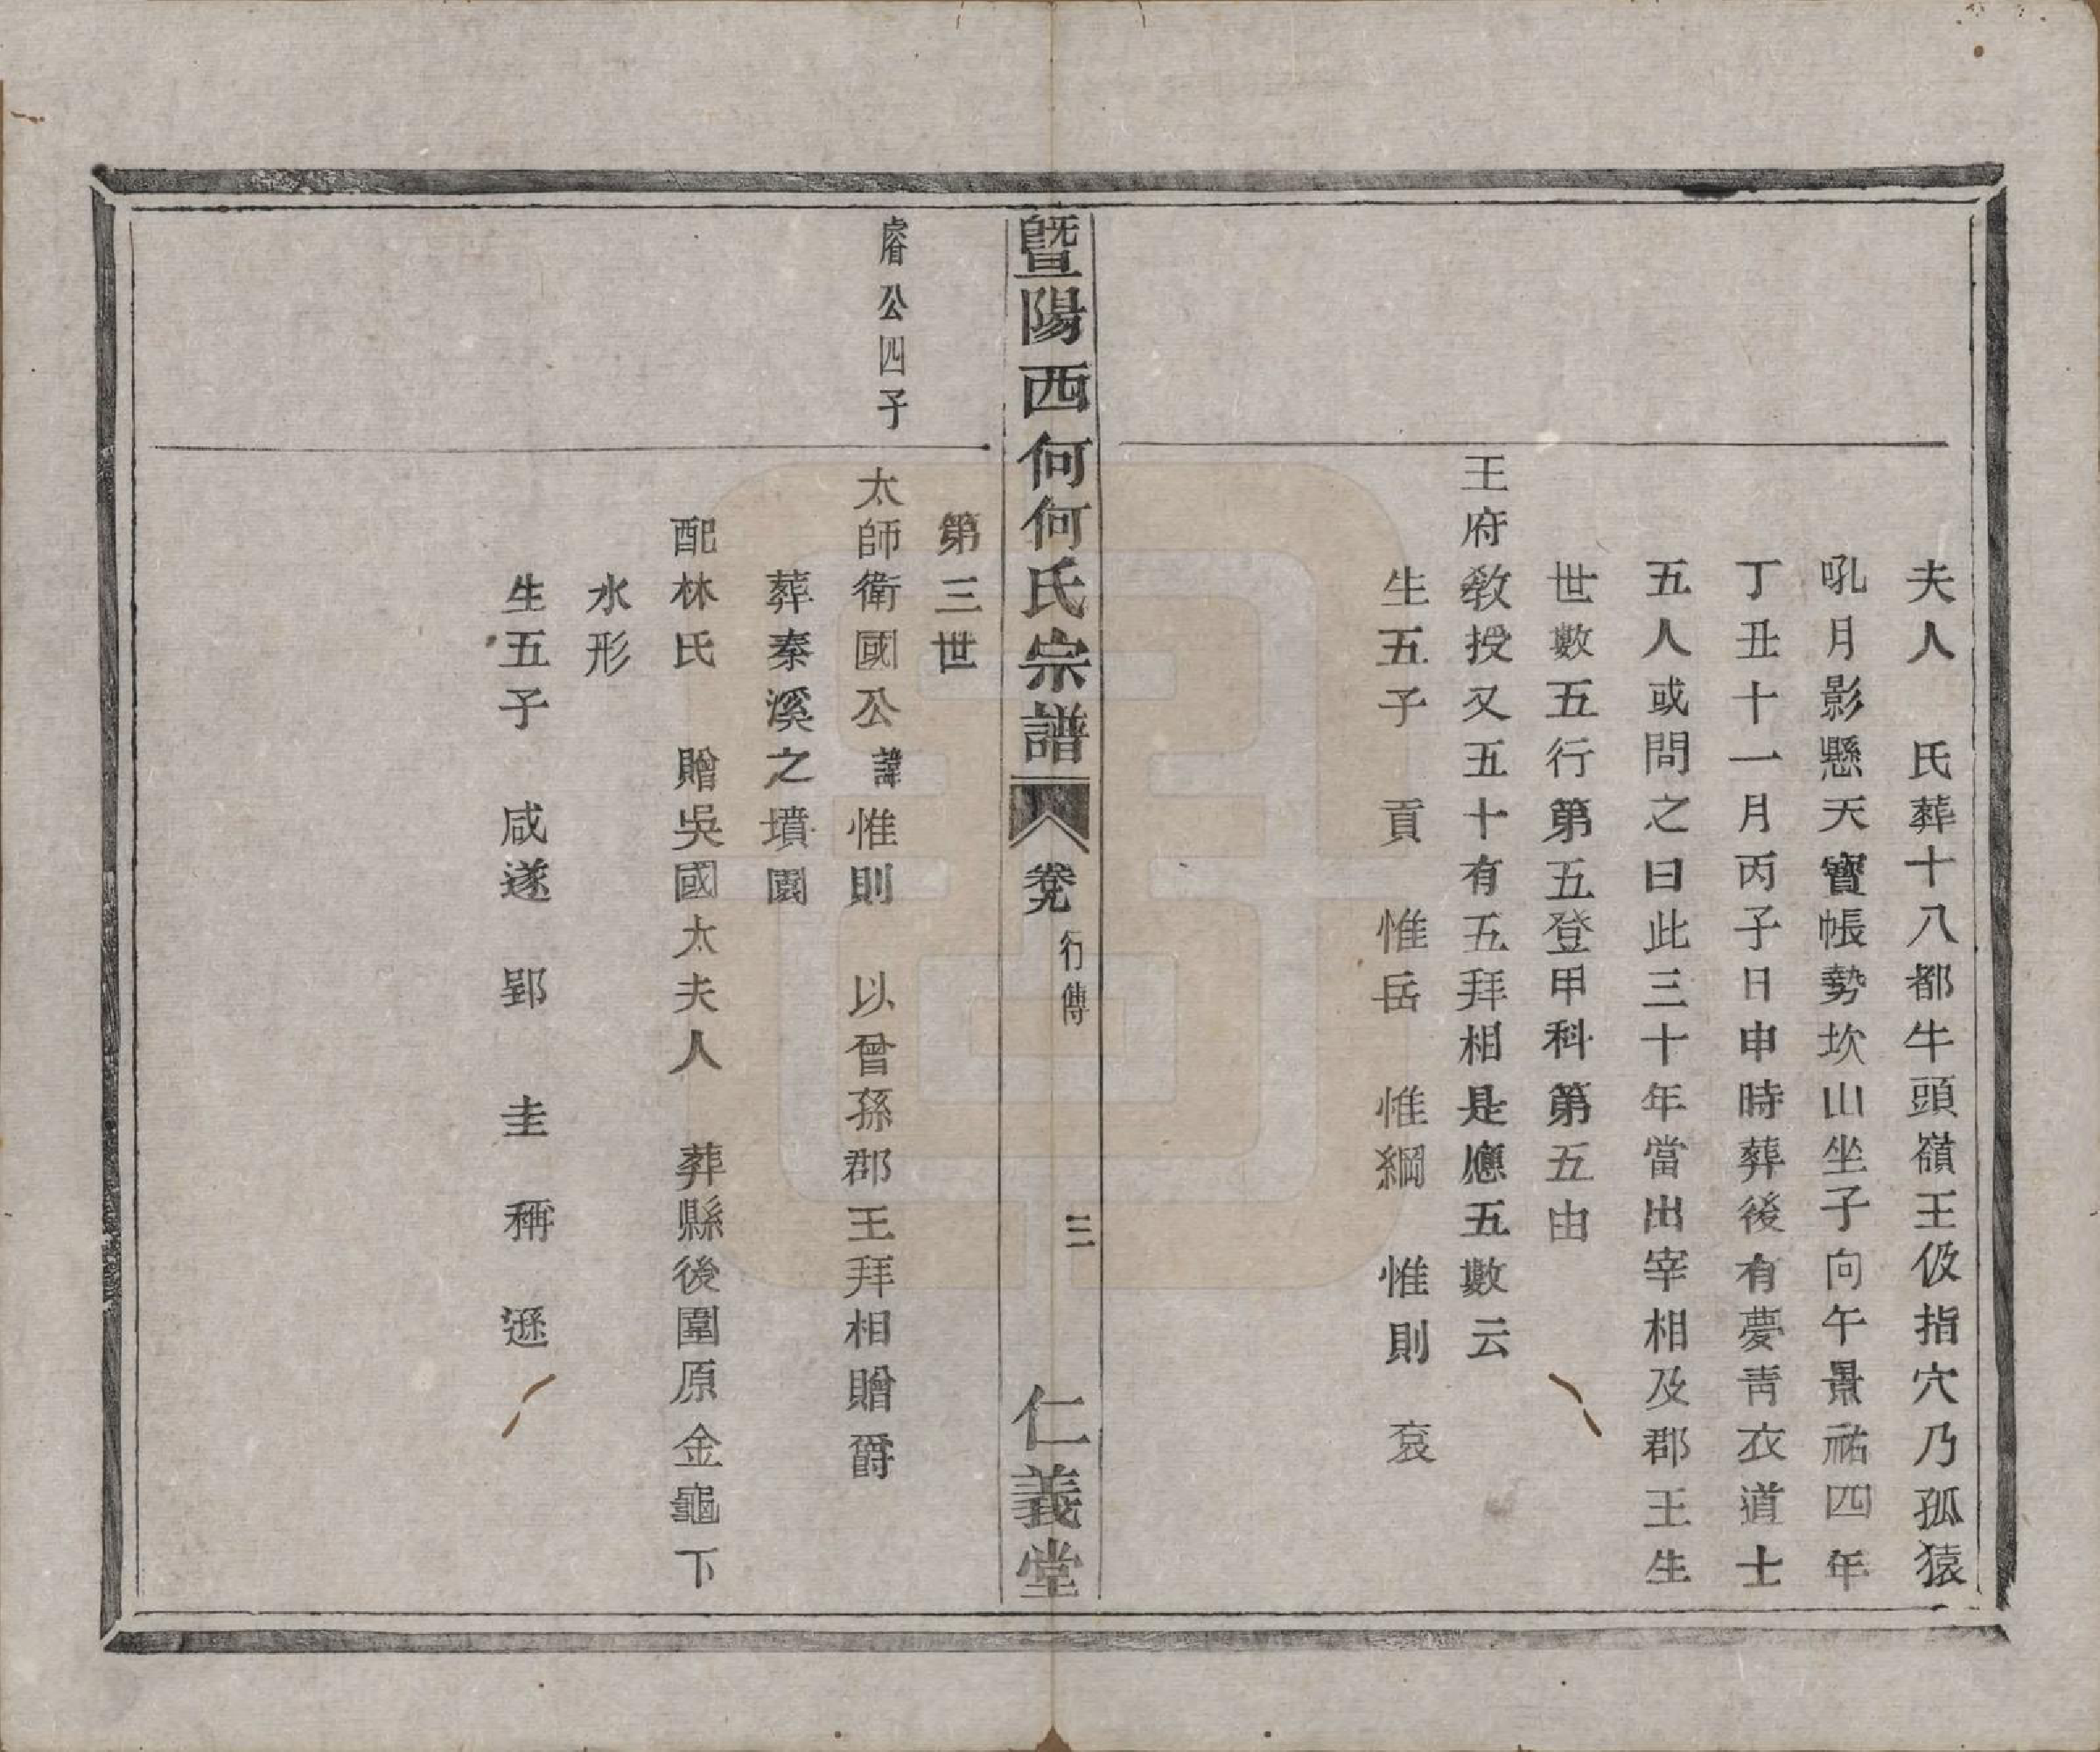 夫人　氏葬十八都牛頭嶺王伋指穴乃孤猿
吼月影懸天寶帳勢坎山坐子向午景祐四年
丁丑十一月丙子日申時葬後有夢青衣道士
五人或問之曰此三十年當出宰相及郡王生
世數五行第五登甲科第五由
王府教授又五十有五拜相是應五數云
生五子　貢　惟岳　惟綱　惟則　袞
暨陽西何何氏宗譜　卷九　行傳　三　仁義堂
第三世
睿公四子
太師衛國公諱惟則　以曾孫郡王拜相贈爵
葬秦溪之墳園
配林氏　贈吳國太夫人　葬縣後圍原金龜下
水形
生五子　咸遂　郢　圭　稱　遜